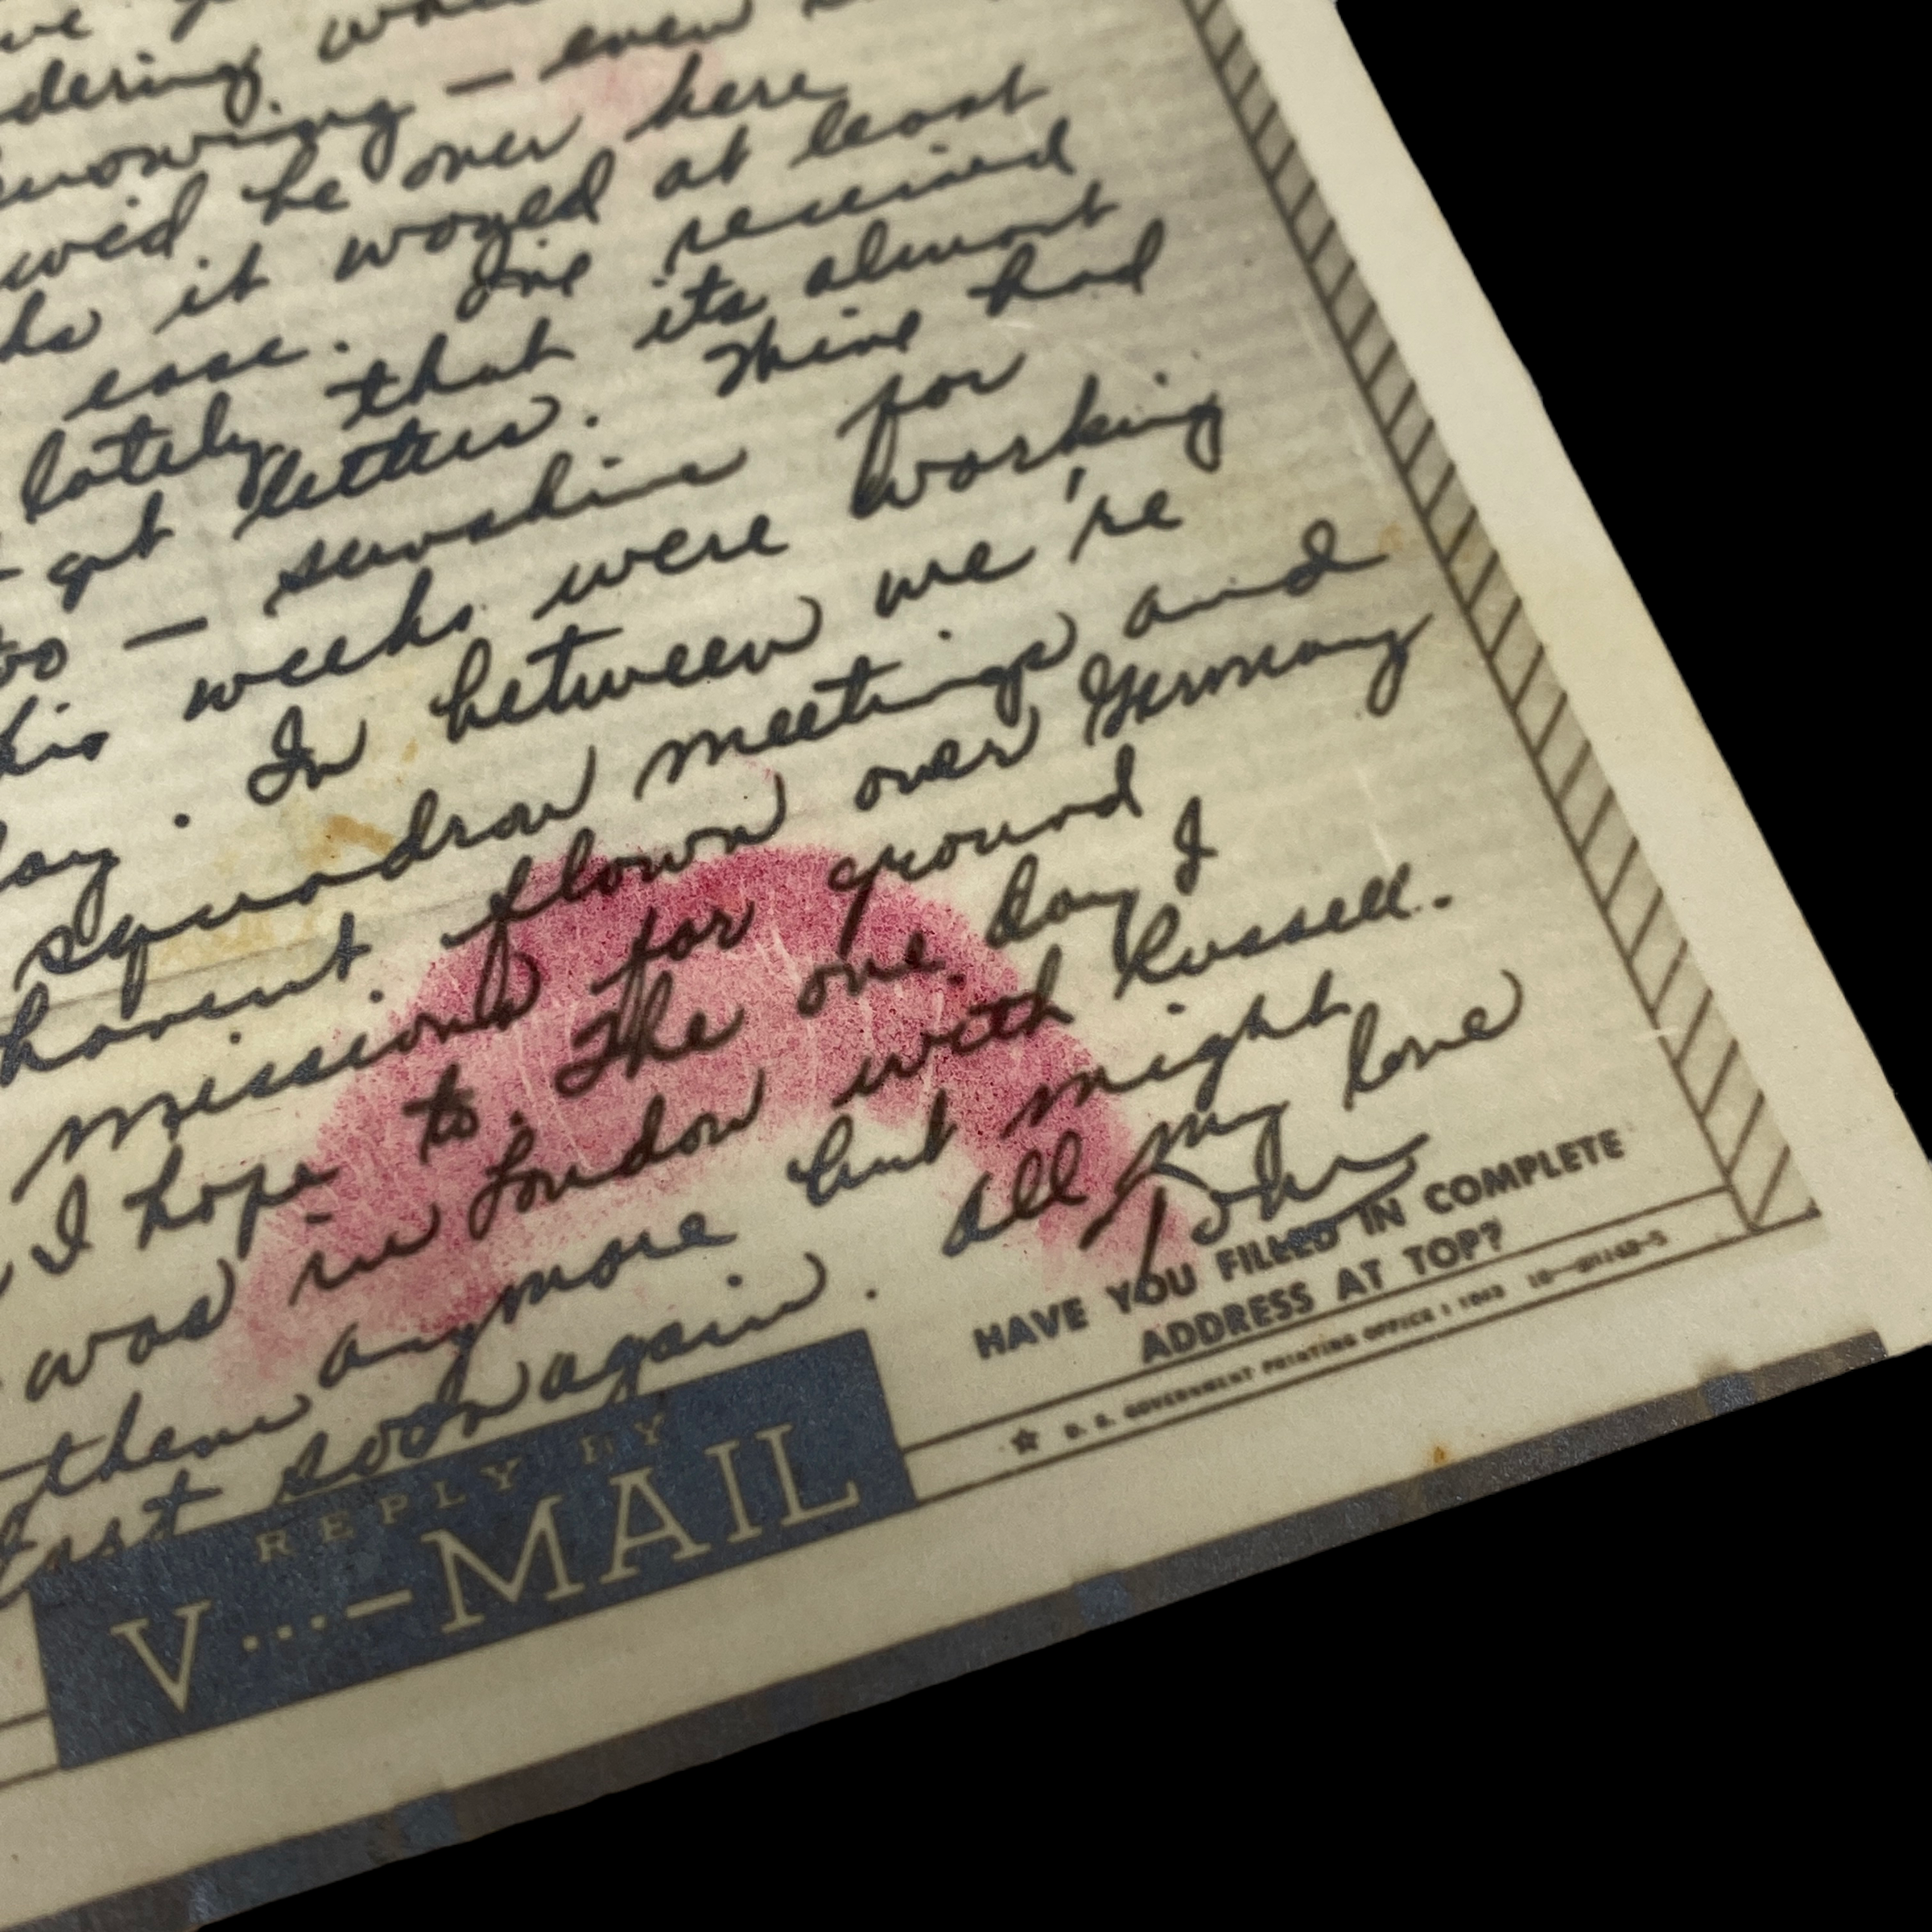 dering
nowing — even
be over here
it would at least
ease. I've received
lately that its almost
get letters. Mine had
too — sunshine for
this weeks were working
day. In between we're
squadron meetings and
havent flown over Germany
missions for ground
I hope to. The one day I
was in London with Russell.
them anymore but might
East soon again. All my love
John
HAVE YOU FILLED IN COMPLETE
ADDRESS AT TOP?
REPLY BY
V...-MAIL
★ U. S. GOVERNMENT PRINTING OFFICE : 1943